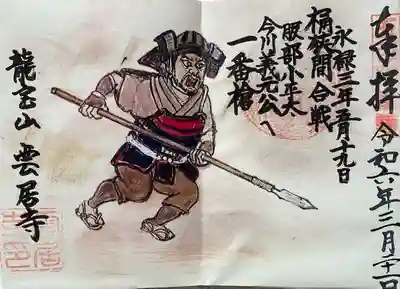 奉拝
令和六年三月二十一日
永禄三年五月十九日
桶狭間合戦
服部小平太
今川義元公へ
一番槍
龍宝山 雲居寺